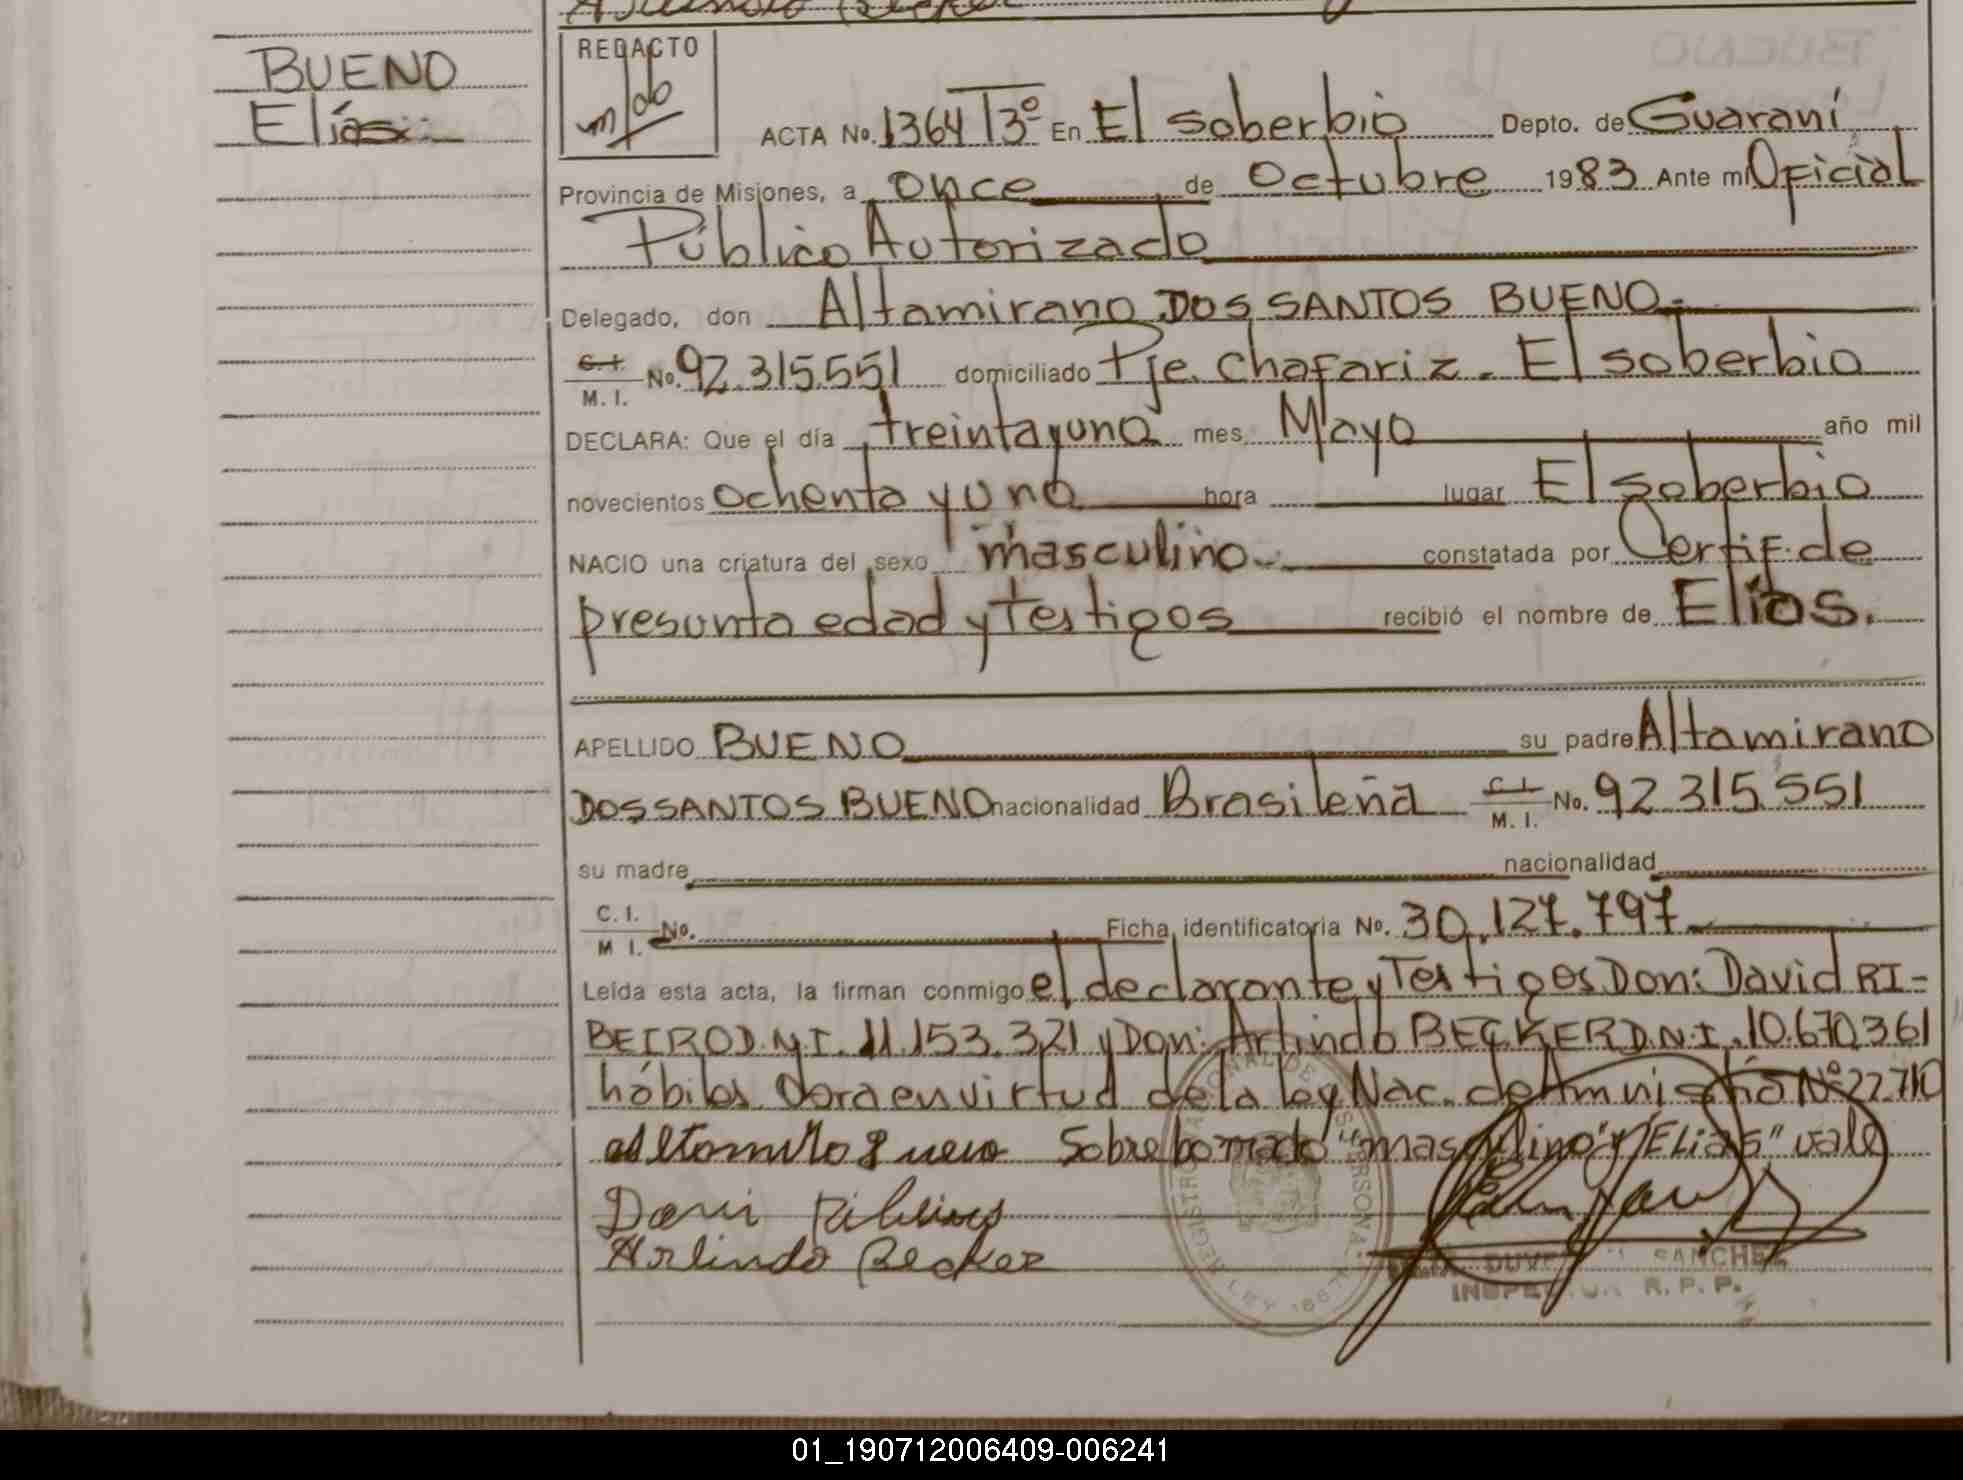 Arlindo Becker
BUENO
Elías
REDACTO
ACTA No. 1364 T3º En El soberbio Depto. de Guaraní
Provincia de Misiones, a once de Octubre 1983 Ante mi Oficial
Público Autorizado
Delegado, don Altamirano DOS SANTOS BUENO.-
C.I. M.I. No. 92.315.551 domiciliado Pje. Chafariz. El soberbio
DECLARA: Que el día treinta y uno mes Mayo año mil
novecientos ochenta y uno hora lugar El soberbio
NACIO una criatura del sexo masculino.- constatada por Certif. de
presunta edad y Testigos recibió el nombre de Elías.
APELLIDO BUENO su padre Altamirano
DOS SANTOS BUENO nacionalidad Brasileña C.I. M.I. No. 92.315.551
su madre nacionalidad
C.I. M.I. No. Ficha identificatoria No. 30.127.797
Leída esta acta, la firman conmigo el declarante y Testigos Don: David RI-
BEIRO D.N.I. 11.153.321 y Don: Arlindo BECKER D.N.I. 10.670.361
hábiles. Obra en virtud de la ley Nac. de Amnistía Nº 22.710
Sobre borrado "masculino" y "Elias" vale
Arlindo Becker
SANCHEZ
INSPECTOR R.P.P.
01_190712006409-006241